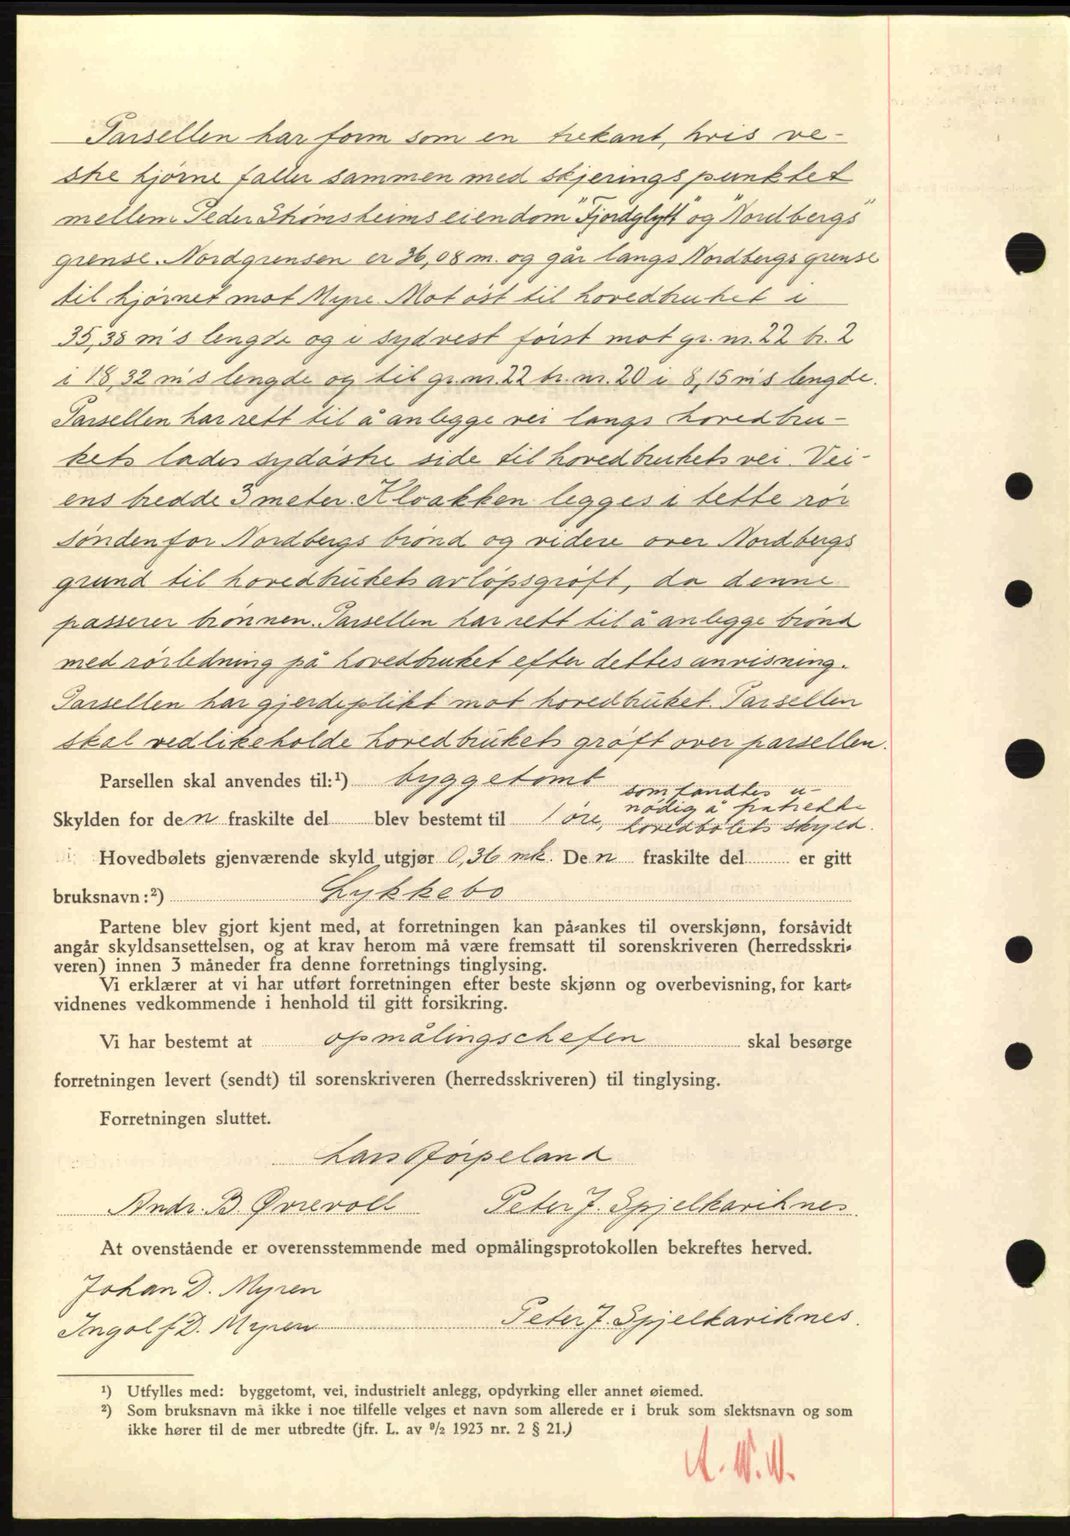 Parsellen har form som en trekant, hvis ve-
stre hjørne faller sammen med skjeringspunktet
mellem Peder Strømsheims eiendom "Fjordglytt" og "Nordbergs"
grense. Nordgrensen er 36,08 m. og går langs Nordbergs grense
til hjørnet mot Myre. Mot øst til hovedbruket i
35,38 m's lengde og i sydvest først mot gr. nr. 22 br. 2
i 18,32 m's lengde og til gr. nr. 22 br. nr. 20 i 8,15 m's lengde.
Parsellen har rett til å anlegge vei langs hovedbru-
kets lades sydøstre side til hovedbrukets vei. Vei-
ens bredde 3 meter. Kloakken legges i tette rør
sønden for Nordbergs brønd og videre over Nordbergs
grund til hovedbrukets avløpsgrøft, da denne
passerer brønnen. Parsellen har rett til å anlegge brønd
med rørledning på hovedbruket efter dettes anvisning.
Parsellen har gjerdeplikt mot hovedbruket. Parsellen
skal vedlikeholde hovedbrukets grøft over parsellen.
Parsellen skal anvendes til:¹) byggetomt
Skylden for den fraskilte del blev bestemt til 1 øre, som fandtes u-
nødig å fratrekke
hovedbølets skyld.
Hovedbølets gjenværende skyld utgjør 0,36 mk. Den fraskilte del er gitt
bruksnavn:²) Lykkebo
Partene blev gjort kjent med, at forretningen kan på-ankes til overskjønn, forsåvidt
angår skyldsansettelsen, og at krav herom må være fremsatt til sorenskriveren (herredsskri-
veren) innen 3 måneder fra denne forretnings tinglysing.
Vi erklærer at vi har utført forretningen efter beste skjønn og overbevisning, for kart-
vidnenes vedkommende i henhold til gitt forsikring.
Vi har bestemt at opmålingschefen skal besørge
forretningen levert (sendt) til sorenskriveren (herredsskriveren) til tinglysing.
Forretningen sluttet.
Lars Jørpeland
Andr. B. Øvrevoll Peter J. Spjelkaviknes.
At ovenstående er overensstemmende med opmålingsprotokollen bekreftes herved.
Johan D. Myren
Ingolf D. Myren Peter J. Spjelkaviknes.
¹) Utfylles med: byggetomt, vei, industrielt anlegg, opdyrking eller annet øiemed.
²) Som bruksnavn må ikke i noe tilfelle velges et navn som allerede er i bruk som slektsnavn og som
ikke hører til de mer utbredte (jfr. L. av ⁹/₂ 1923 nr. 2 § 21.)
A. W. W.